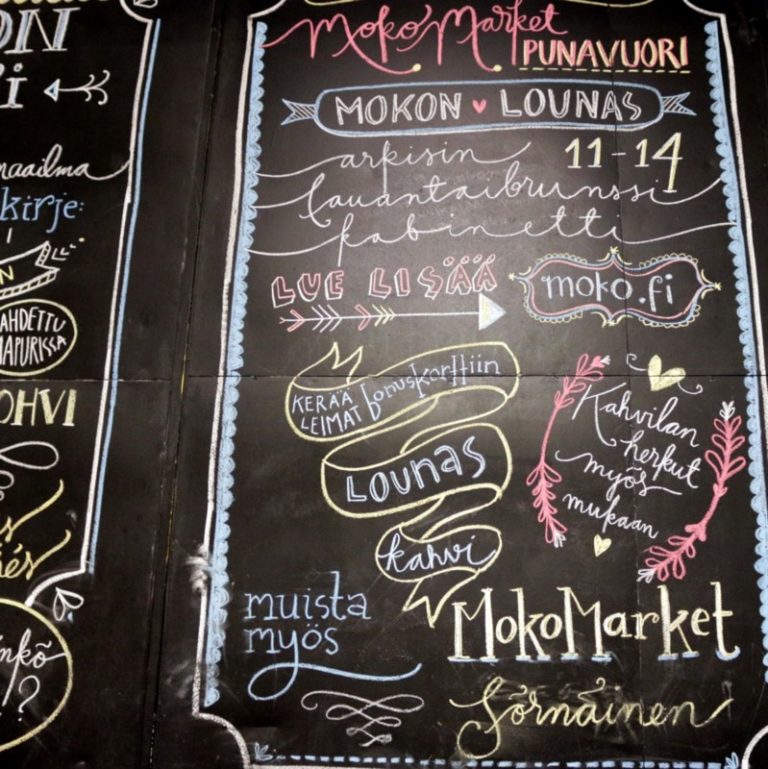 ON
i
maailma
kirje:
N
AHDETTU
APURISSA
OHVI
s
és
inkö
!?
Moko Market
PUNAVUORI
MOKON LOUNAS
arkisin 11-14
lauantaibrunssi
kabinetti
LUE LISÄÄ
moko.fi
KERÄÄ
LEIMAT bonuskorttiin
LOUNAS
kahvi
Kahvilan
herkut
myös
mukaan
muista
myös
MokoMarket
Sörnäinen